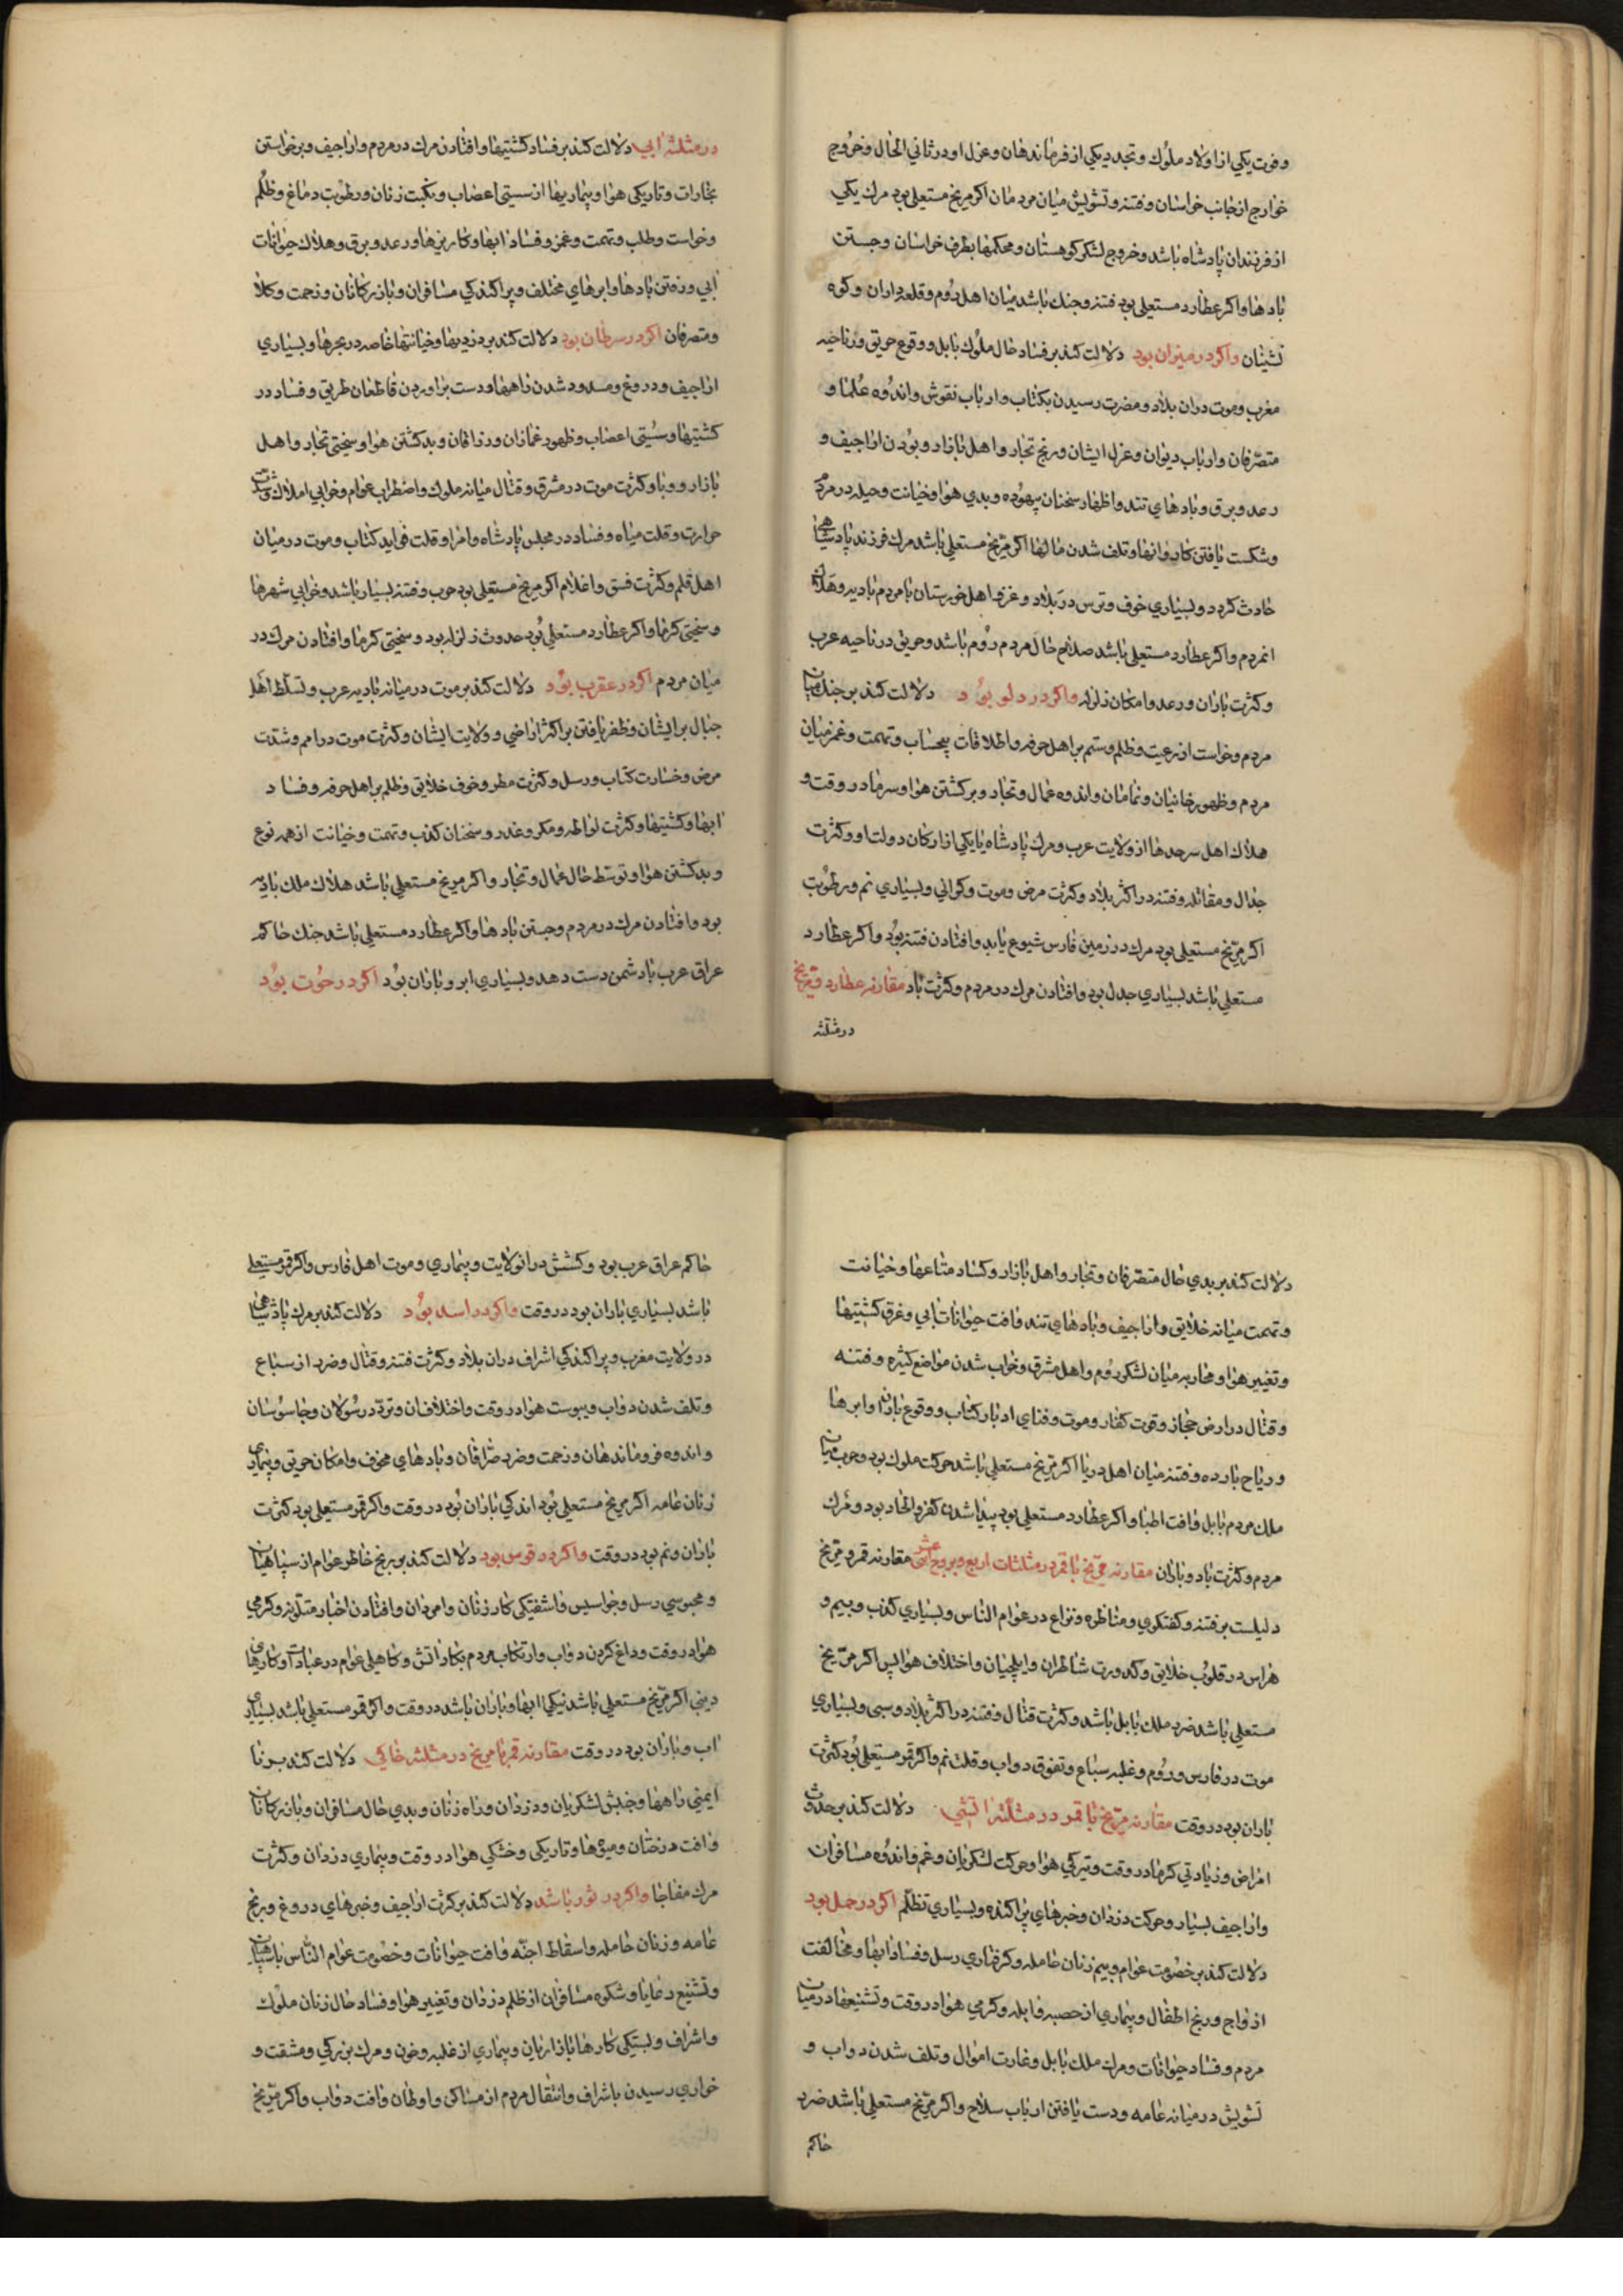 وفوت یکی از اولاد ملوک وتجدد یکی از فرماندهان وعزل او در ثانی الحال وخروج
خوارج از جانب خراسان وفتنه وتشویش میان مردمان اکر مریخ مستعلی بود مرک یکی
از فرزندان پادشاه باشد وخروج لشکر کوهستان ومحکمها بطرف خراسان وجستن
بادها واکر عطارد مستعلی بود فتنه وجنک باشد میان اهل روم وقلعه داران وکوه
نشینان واکر در میزان بود دلالت کند بر فساد حال ملوک بابل ووقوع حریق در ناحیه
مغرب وموت دران بلاد ومضرت رسیدن بکتاب وارباب نقوش واندوه علما و
متصرفان وارباب دیوان وعزل ایشان ورنج تجار واهل بازار وبودن اراجیف و
رعد وبرق وبادهای تند واظهار سخنان بیهوده وبدی هوا وخیانت وحیله در مردم
وشکست یافتن کاروانها وتلف شدن مالها اکر مریخ مستعلی باشد مرک فرزند پادشاهی
حادث کردد وبسیاری خوف وترس در بلاد وغزو اهل خوزستان با مردم بادیه وهلاک
انمردم واکر عطارد مستعلی باشد صلاح حال مردم روم باشد وحریق در ناحیه عرب
وکثرت باران ورعد وامکان زلزله واکر در دلو بود دلالت کند بر جنک میان
مردم وخواست از رعیت وظلم وستم بر اهل حرفه واطلاقات بیحساب وتهمت وغمز میان
مردم وظهور خانیان ونمامان واندوه عمال وتجار وبرکشتن هوا وسرما در وقت و
هلاک اهل سرحدها از ولایت عرب ومرک پادشاه یا یکی از ارکان دولت او وکثرت
جدال ومقاتله وفتنه در اکثر بلاد وکثرت مرض وموت وکرانی وبسیاری نم ورطوبت
اکر مریخ مستعلی بود مرک در زمین فارس شیوع یابد وافتادن فتنه بود واکر عطارد
مستعلی باشد بسیاری جدل بود وافتادن مرک در مردم وکثرت باد مقارنه عطارد ومریخ
در مثلثه
در مثلثه ابی دلالت کند بر فساد کشتیها وافتادن مرک در مردم واراجیف وبرخواستن
بخارات وتاریکی هوا وبیماریها از سستی اعصاب ونکبت زنان ورطوبت دماغ وظلم
وخواست وطلب وتهمت وغمز وفساد ابها وکاریزها ورعد وبرق وهلاک حیوانات
ابی ووزیدن بادها وابرهای مختلف وپراکندکی مسافران وبازرکانان وزحمت وکلا
ومتصرفان اکر در سرطان بود دلالت کند بر دزدیها وخیانتها خاصه در بحرها وبسیاری
اراجیف ودروغ ومسدود شدن راهها ودست براوردن قاطعان طریق وفساد در
کشتیها وسستی اعصاب وظهور غمازان ودزدان وبد کشتن هوا وسختی تجار واهل
بازار ووبا وکثرت موت در مشرق وقتال میانه ملوک واضطراب عوام وخرابی املاک وشدت
حرارت وقلت میاه وفساد در مجلس پادشاه وامرا وقلت فواید کتاب وموت در میان
اهل قلم وکثرت فسق واغلام اکر مریخ مستعلی بود حرب وفتنه بسیار باشد وخرابی شهرها
وسختی کرما واکر عطارد مستعلی بود حدوث زلزله بود وسختی کرما وافتادن مرک در
میان مردم اکر در عقرب بود دلالت کند بر موت در میانه بادیه عرب وتسلط اهل
جبال بر ایشان وظفر یافتن بر اکثر اراضی وولایت ایشان وکثرت موت در امم وشدت
مرض وخسارت کتاب ورسل وکثرت مطر وخوف خلایق وظلم بر اهل حرفه وفساد
ابها وکشتیها وکثرت لواطه ومکر وغدر وسخنان کذب وتهمت وخیانت از همه نوع
وبد کشتن هوا وتوسط حال عمال وتجار واکر مریخ مستعلی باشد هلاک ملک بادیه
بود وافتادن مرک در مردم وجستن بادها واکر عطارد مستعلی باشد جنک حاکم
عراق عرب با دشمن دست دهد وبسیاری ابر وباران بود اکر در حوت بود
دلالت کند بر بدی حال متصرفان وتجار واهل بازار وکساد متاعها وخیانت
وتهمت میانه خلایق واراجیف وبادهای تند وافت حیوانات ابی وغرق کشتیها
وتغییر هوا ومحاربه میان لشکر روم واهل مشرق وخراب شدن مواضع کثیره وفتنه
وقتال در ارض حجاز وقوت کفار وموت وفنای ادبار کتاب ووقوع بارانها وابرها
وریاح بارده وفتنه میان اهل دریا اکر مریخ مستعلی باشد حرکت ملوک بود وحرب میان
ملک مردم بابل وافت اطبا واکر عطارد مستعلی بود پیدا شدن کفر والحاد بود ومرک
مردم وکثرت باد وباران مقارنه مریخ با قمر در مثلثات اربع وبروج اثنی عشر مقارنه قمر ومریخ
دلیلست بر فتنه وکفتکوی ومناظره ونزاع در عوام الناس وبسیاری کذب وبیم و
هراس در قلوب خلایق وکدورت شاطران وایلچیان واختلاف هوا پس اکر مریخ
مستعلی باشد ضرر ملک بابل باشد وکثرت قتال وفتنه در اکثر بلاد وسبی وبسیاری
موت در فارس وروم وغلبه سباع وتفوق دواب وقلت نم واکر قمر مستعلی بود کثرت
باران بود در وقت مقارنه مریخ با قمر در مثلثه اتشی دلالت کند بر حدوث
امراض وزیادتی کرما در وقت وتیرکی هوا وحرکت لشکریان وغم واندوه مسافران
واراجیف بسیار وحرکت دزدان وخبرهای پراکنده وبسیاری تظلم اکر در حمل بود
دلالت کند بر خصومت عوام وبیم زنان حامله وکرفتاری رسل وفساد ابها ومخالفت
ازواج ورنج اطفال وبیماری از حصبه وابله وکرمی هوا در وقت وتشنیعها در میان
مردم وفساد حیوانات ومرک ملک بابل وغارت اموال وتلف شدن دواب و
تشویش در میانه عامه ودست یافتن ارباب سلاح واکر مریخ مستعلی باشد ضرر
حاکم
حاکم عراق عرب بود وکشش در انولایت وبیماری وموت اهل فارس واکر قمر مستعلی
باشد بسیاری باران بود در وقت واکر در اسد بود دلالت کند بر مرک پادشاهی
در ولایت مغرب وپراکندکی اشراف دران بلاد وکثرت فتنه وقتال وضرر از سباع
وتلف شدن دواب ویبوست هوا در وقت واختلاف ان وتردد رسولان وجاسوسان
واندوه فرماندهان وزحمت وضرر صرافان وبادهای مخوف وامکان حریق وبیماری
زنان عامه اکر مریخ مستعلی بود اندکی باران بود در وقت واکر قمر مستعلی بود کثرت
باران ونم بود در وقت واکر در قوس بود دلالت کند بر رنج خاطر عوام از سپاهیان
ومحبوسی رسل وجواسیس واشفتکی کار زنان وامردان وافتادن اخبار متلونه وکرمی
هوا در وقت وداغ کردن دواب وارتکاب مردم بکار اتش وکاهلی عوام در عبادات وکارهای
دینی اکر مریخ مستعلی باشد نیکی ابها وباران باشد در وقت واکر قمر مستعلی باشد بسیاری
اب وباران بود در وقت مقارنه قمر با مریخ در مثلثه خاکی دلالت کند بر نا
ایمنی راهها وجنبش لشکریان ودزدان وراه زنان وبدی حال مسافران وبازرکانان
وافت درختان ومیوها وتاریکی وخشکی هوا در وقت وبیماری دزدان وکثرت
مرک مفاجا واکر در ثور باشد دلالت کند بر کثرت اراجیف وخبرهای دروغ ورنج
عامه وزنان حامله واسقاط اجنه وافت حیوانات وخصومت عوام الناس با سپاهیان
وتشنیع رعایا وشکوه مسافران از ظلم دزدان وتغییر هوا وفساد حال زنان ملوک
واشراف وبستکی کارها بازاریان وبیماری از غلبه وخون ومرک بزرکی ومشقت و
خواری رسیدن باشراف وانتقال مردم از مساکن واوطان وافت دواب واکر مریخ